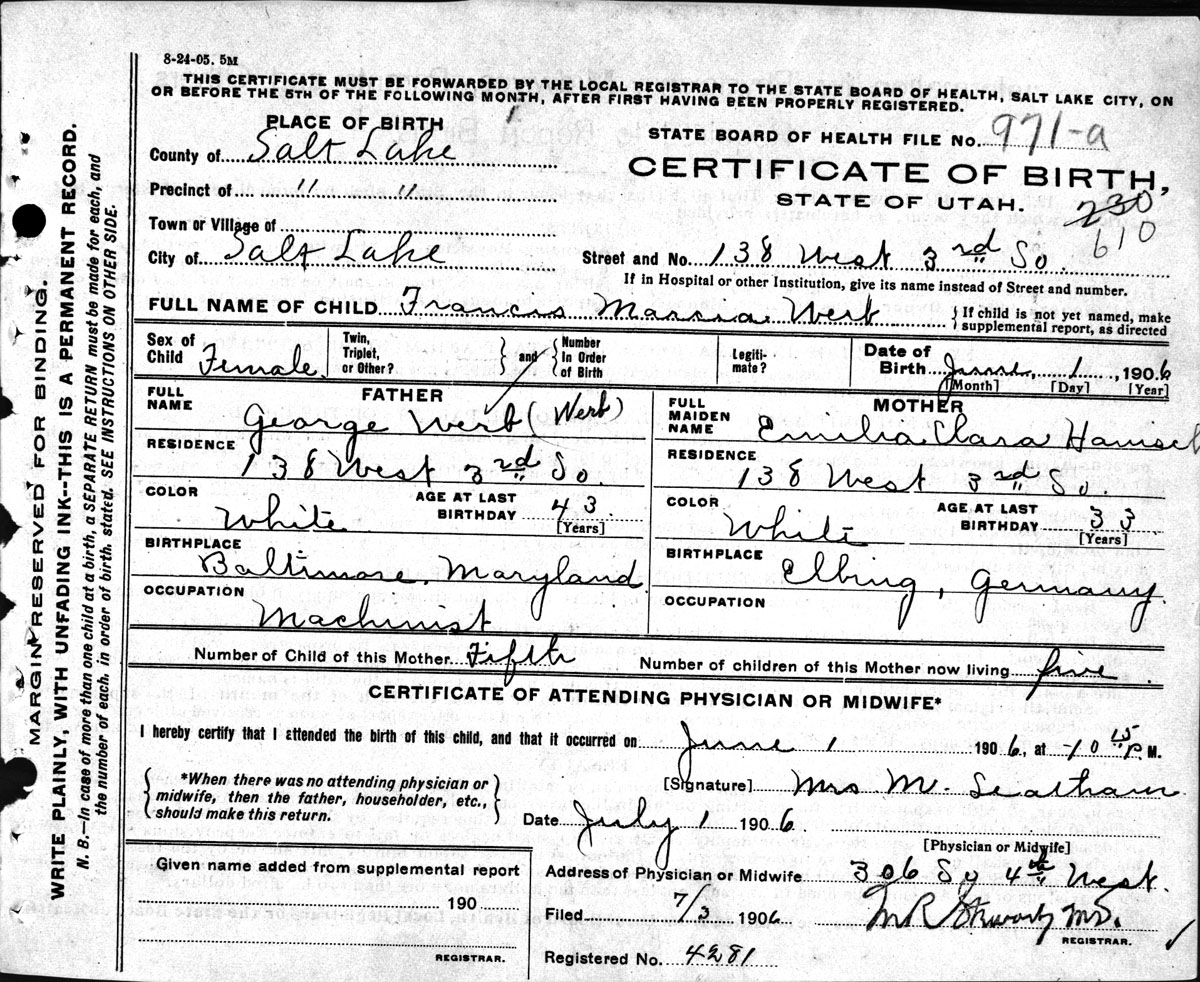 8-24-05. 5M
THIS CERTIFICATE MUST BE FORWARDED BY THE LOCAL REGISTRAR TO THE STATE BOARD OF HEALTH, SALT LAKE CITY, ON
OR BEFORE THE 5TH OF THE FOLLOWING MONTH, AFTER FIRST HAVING BEEN PROPERLY REGISTERED.
PLACE OF BIRTH
County of Salt Lake
Precinct of " "
Town or Village of
City of Salt Lake
STATE BOARD OF HEALTH FILE No. 971-a
CERTIFICATE OF BIRTH,
STATE OF UTAH.
230
610
Street and No. 138 West 3rd So.
If in Hospital or other Institution, give its name instead of Street and number.
FULL NAME OF CHILD Francis Werb
} If child is not yet named, make
supplemental report, as directed
Sex of Child Female
Twin, Triplet, or Other?
} and {
Number In Order of Birth
Legitimate?
Date of Birth June 1, 1906
[Month] [Day] [Year]
FATHER
FULL NAME George Werb (Werb)
RESIDENCE
138 West 3rd So.
COLOR White
AGE AT LAST BIRTHDAY 43
[Years]
BIRTHPLACE
Baltimore, Maryland
OCCUPATION
Machinist
MOTHER
FULL MAIDEN NAME Emilia Clara
RESIDENCE
138 West 3rd So.
COLOR White
AGE AT LAST BIRTHDAY 33
[Years]
BIRTHPLACE
Elbing, Germany.
OCCUPATION
Number of Child of this Mother Fifth
Number of children of this Mother now living five.
CERTIFICATE OF ATTENDING PHYSICIAN OR MIDWIFE*
I hereby certify that I attended the birth of this child, and that it occurred on June 1 1906, at 10 15 P.M.
{ *When there was no attending physician or
midwife, then the father, householder, etc.,
should make this return. }
[Signature] Mrs M.
Date July 1 1906.
[Physician or Midwife]
Address of Physician or Midwife 306 So 4th West.
Filed 7/3 1906
M.D.
REGISTRAR.
Registered No. 4281
Given name added from supplemental report
190
REGISTRAR.
MARGIN RESERVED FOR BINDING.
WRITE PLAINLY, WITH UNFADING INK--THIS IS A PERMANENT RECORD.
N. B.—In case of more than one child at a birth, a SEPARATE RETURN must be made for each, and
the number of each, in order of birth, stated. SEE INSTRUCTIONS ON OTHER SIDE.